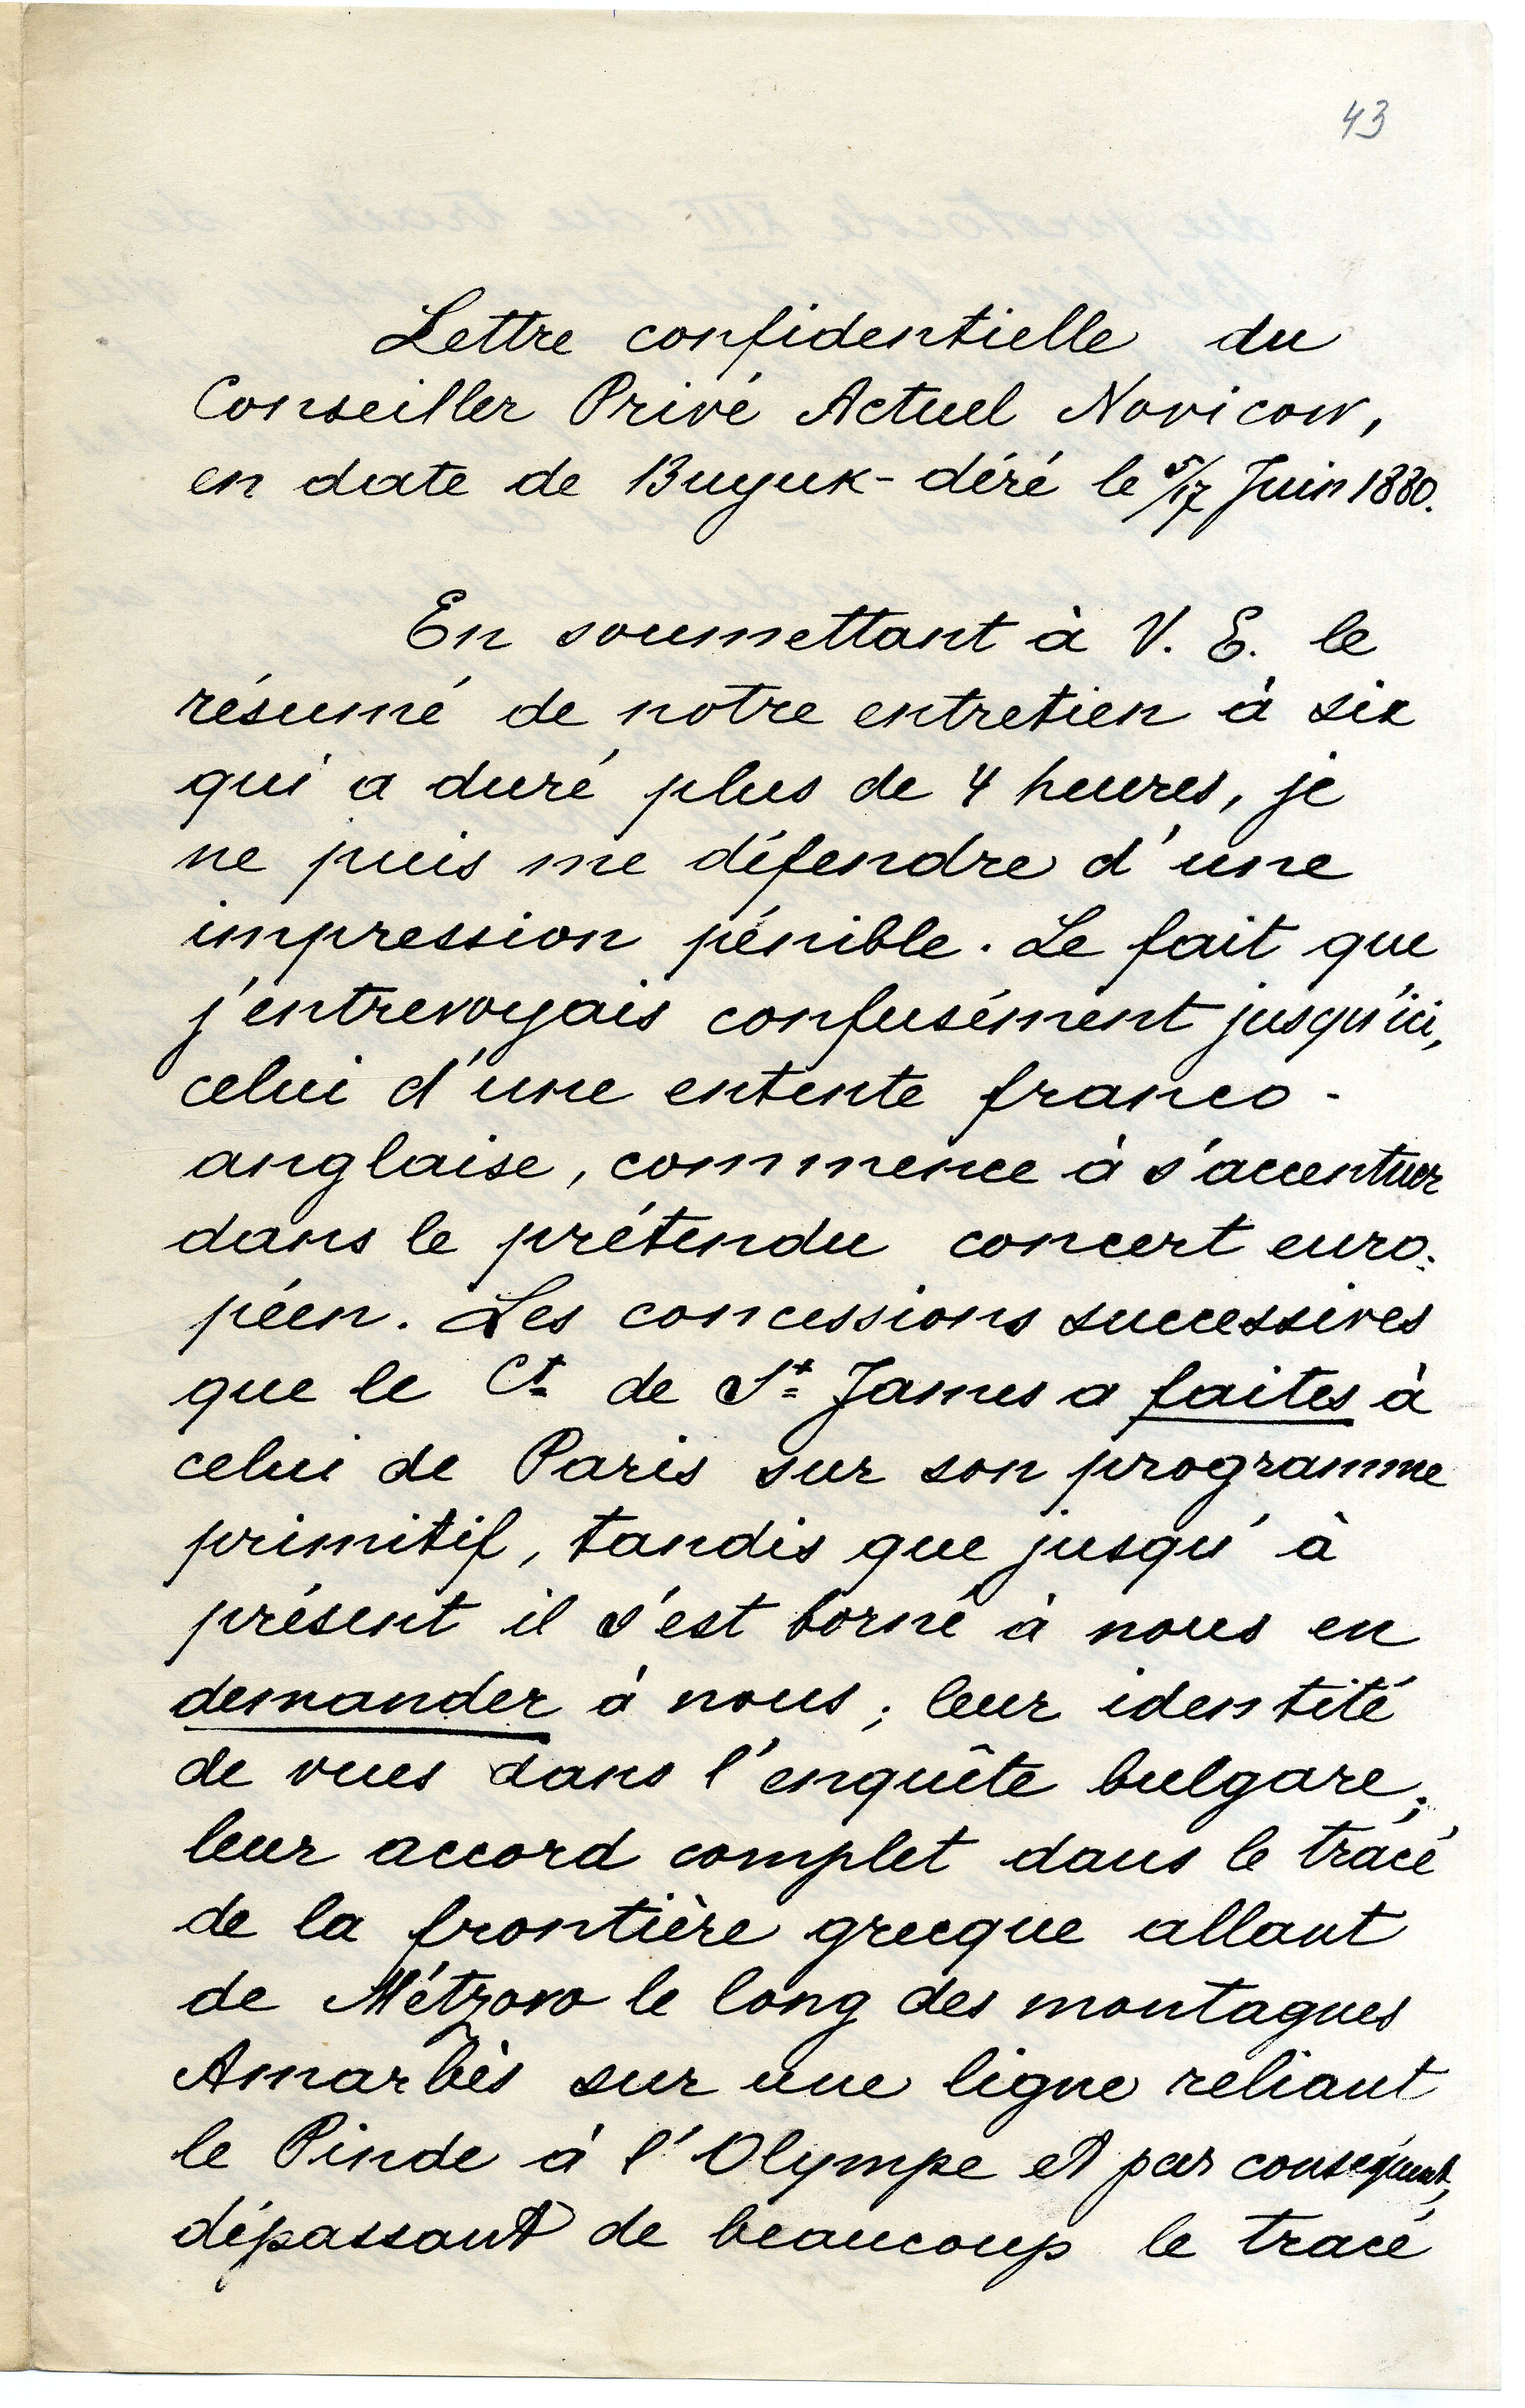 43
Lettre confidentielle du
Conseiller Privé Actuel Novicow,
en date de Buyuk-déré le 5/17 Juin 1880.
En soumettant à V. E. le
résumé de notre entretien à six
qui a duré plus de 4 heures, je
ne puis me défendre d'une
impression pénible. Le fait que
j'entrevoyais confusément jusqu'ici,
celui d'une entente franco-
anglaise, commence à s'accentuer
dans le prétendu concert euro-
péen. Les concessions successives
que le Ct de St James a faites à
celui de Paris sur son programme
primitif, tandis que jusqu'à
présent il s'est borné à nous en
demander à nous; leur identité
de vues dans l'enquête bulgare;
leur accord complet dans le tracé
de la frontière grecque allant
de Métzovo le long des montagnes
Amarbès sur une ligne reliant
le Pinde à l'Olympe et par conséquent,
dépassant de beaucoup le tracé